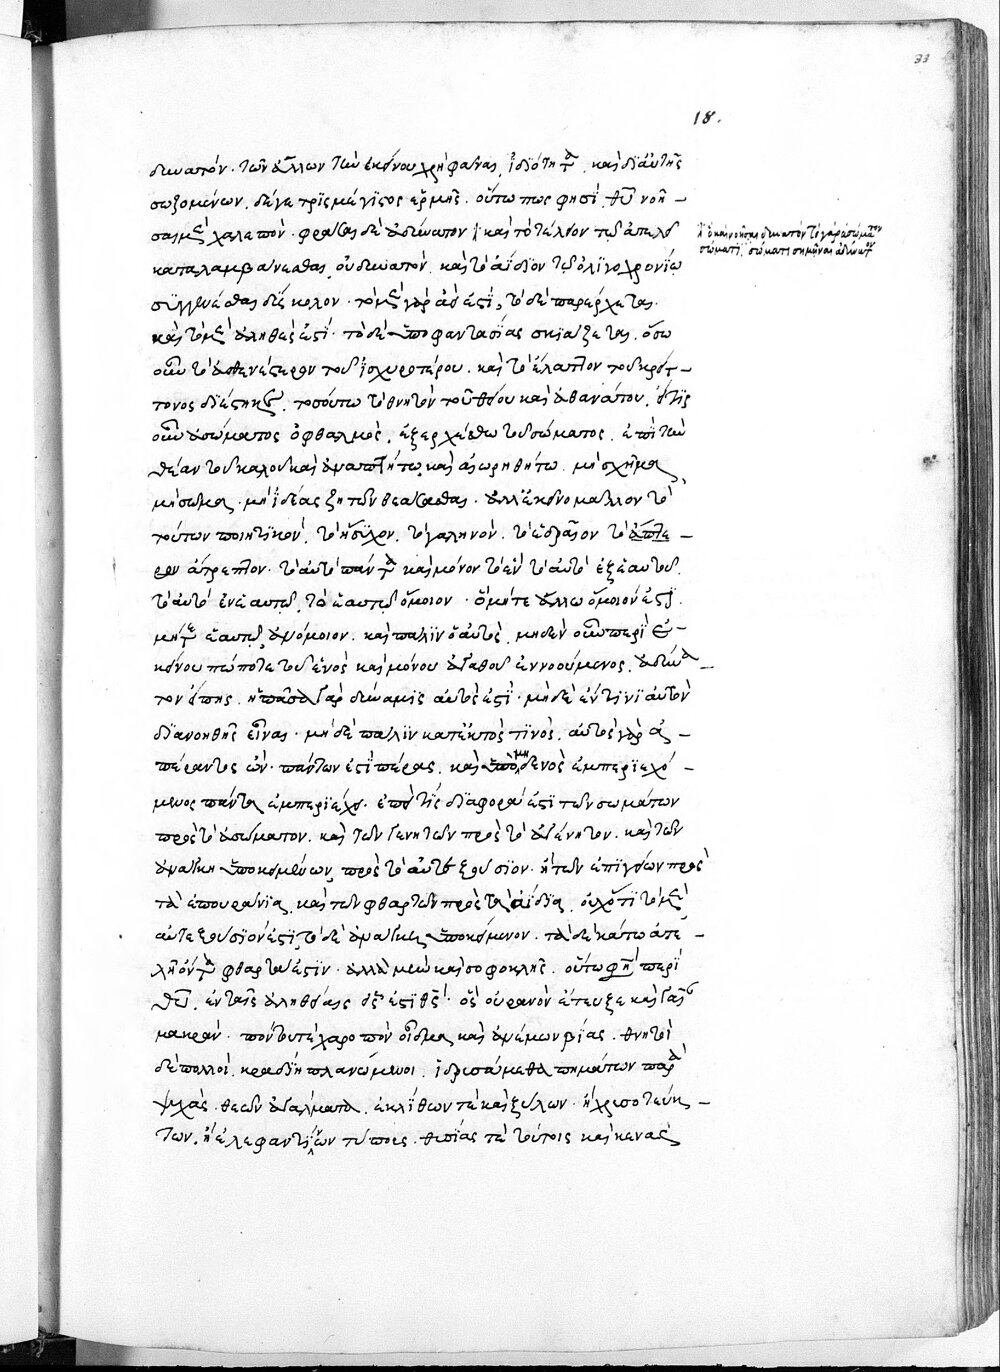 18.
δυνατόν. τῶν ἄλλων τῶν ἐκείνου χρὴ φάναι, ἰδιότητα, καὶ δι' αὐτῆς
σωζομένων. λέγει τρϊσμέγιστος ἑρμῆς. οὕτω πως φησὶ. θν νοῆ –
σαι μὲν χαλεπόν. φράσαι δὲ ἀδύνατον καὶ τὸ τέλειον τῷ ἀτελεῖ
εἰ καὶ νοῆσαι δυνατὸν τὸ γὰρ ἀσώματον
σώματι σημῆναι ἀδύνατον
καταλαμβάνεσθαι, οὐ δυνατὸν. καὶ τὸ ἀΐδϊον τῷ ὀλϊγοχρονίῳ
συγγενέσθαι δύσκολον. τὸ μὲν γὰρ ἀεί ἐστι, τὸ δὲ παρέρχεται.
καὶ τὸ μὲν ἀληθές ἐστὶ. τὸ δὲ ὑπὸ φαντασίας σκϊάζεται. ὅσω
οὖν τὸ ἀσθενέστερον τοῦ ἰσχυροτέρου. καὶ τὸ ἔλαττον τοῦ κρείτ –
τονος διέστηκε, τοσούτω τὸ θνητὸν τοῦ θείου καὶ ἀθανάτου. εἴ τϊς
οὖν ἀσώματος ὀφθαλμὸς, ἐξερχέσθω τοῦ σώματος. ἐπὶ τὴν
θέαν τοῦ καλοῦ καὶ ἀναπτήτω καὶ αἰωρηθήτω. μὴ σχῆμα
μὴ σῶμα. μὴ ἰδέας ζητῶν θεάσασθαι. ἀλλ' ἐκεῖνο μᾶλλον τὸ
τούτων ποιητϊκὸν. τὸ ἥσυχον. τὸ γαληνὸν. τὸ ἑδραῖον τὸ ἄτρε –
τον ἄτρεπτον. τὸ αὐτὸ πάντα καὶ μόνον τὸ ἓν τὸ αὐτὸ ἐξ ἑαυτοῦ.
τὸ αὐτὸ ἐν ἑαυτῷ. τὸ ἑαυτῷ ὅμοιον. ὃ μήτε ἄλλω ὅμοιόν ἐστϊ.
μήτε ἑαυτῷ ἀνόμοιον. καὶ πάλϊν ὁ αὐτός. μηδὲν οὖν περὶ ἐ –
κείνου πώποτε τοῦ ἑνὸς καὶ μόνου ἀγαθοῦ ἐννοούμενος, ἀδύνα –
τον εἴπης. ἡ πᾶσα γὰρ δύναμϊς αὐτός ἐστϊ. μηδὲ ἔν τινι αὐτὸν
δϊανοηθῆς εἶναι. μηδὲ πάλϊν κατ' ἐκτὸς τϊνὸς. αὐτὸς γὰρ ἀ –
πέραντος ὢν. πάντων ἐστὶ πέρας. καὶ ὑπὸ μηδενὸς ἐμπερϊεχό –
μενος πάντα ἐμπερϊέχει. ἐπεὶ τίς δϊαφορά ἐστϊ τῶν σωμάτων
πρὸς τὸ ἀσώματον. καὶ τῶν γενητῶν πρὸς τὸ ἀγένητον. καὶ τῶν
ἀνάγκη ὑποκειμένων, πρὸς τὸ αὐτεξούσϊον. ἢ τῶν ἐπϊγείων πρὸς
τὰ ἐπουράνϊα, καὶ τῶν φθαρτῶν πρὸς τὰ ἀΐδϊα. οὐχ ὅτϊ τὸ μὲν
αὐτεξούσϊόν ἐστϊ, τὸ δὲ ἀνάγκη ὑποκείμενον. τὰ δὲ κάτω ἀτε –
λῆ ὄντα φθαρτά ἐστϊν. ἀλλὰ μὴν καὶ σοφοκλῆς. οὕτω φησὶ περὶ
θυ. ἐν ταῖς ἀληθείαις εἷς ἐστϊ θς. ὃς οὐρανὸν ἔτευξε καὶ γαῖαν
μακρὰν. πόντου τε χαροπὸν οἶδμα καὶ ἀνέμων βίας. θνητοὶ
δὲ πολλοὶ. καρδίη πλανώμενοι. ἱδρυσάμεθα πημάτων παρὰ
ψυχὰς. θεῶν ἀγάλματα. ἐκ λίθων τε καὶ ξύλων. ἢ χρυσοτεύκ –
των. ἢ ἐλεφαντίνων τύπους. θυσίας τε τούτοις καὶ κενὰς